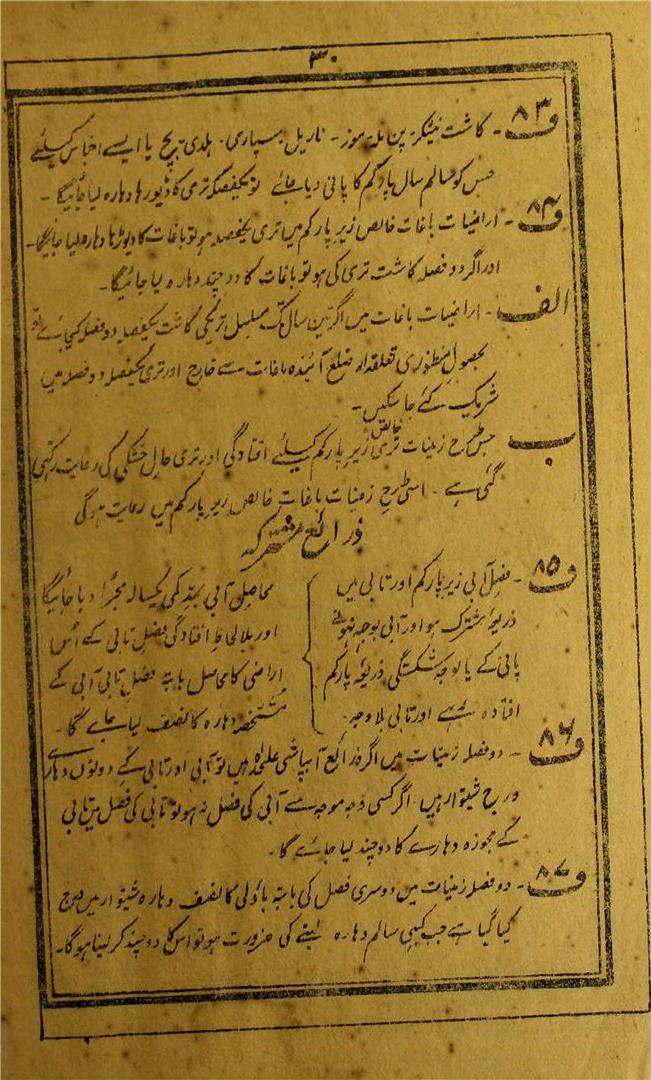 ۳۰
ف ۸۳ ۔ کاشت نیشکر پن ملہ موز ۔ ناریل سپاری ۔ ہلدی یا ایسے اجناس کیلئے
جس کو سالم سال پارکم کا پانی دیا جائے تو یکفصلہ تری کا ڈیوڑہا دہارہ لیا جائیگا ۔
ف ۸۴ ۔ اراضیات باغات خالص زیر پارکم میں تری یکفصلہ ہو تو باغات کا ڈیوڑہا دہارہ لیا جائیگا ۔
اور اگر دو فصلہ کاشت تری کی ہو تو باغات کا دوچند دہارہ لیا جائیگا ۔
الف ۔ اراضیات باغات میں اگر تین سال تک مسلسل تری کی کاشت یکفصلہ دو فصلہ کیجائے تو
بحصول منظوری تعلقدار ضلع آئندہ باغات سے خارج اور تری یکفصلہ دو فصلہ میں
شریک کئے جا سکیں ۔
ب جس طرح زمینات تری خالص زیر پارکم کیلئے افتادگی اور تری حال خشکی کی رعایت رکہی
گئی ہے ۔ اسی طرح زمینات باغات خالص زیر پارکم میں رعایت ہوگی
ذرائع مشترکہ
ف ۸۵ ۔ فصل آبی زیر پارکم اور تابی میں
ذریعہ مشترک ہو اور آبی بوجہ نہونے
پانی کے یا بوجہ شکستگی ذریعہ پارکم
افتادہ رہے اور تابی بلا وجہ
محاصل آبی بمد کمی یکسالہ مجرا دیا جائیگا
اور بلا لحاظ افتادگی فصل تابی کے اُس
اراضی کا محاصل بابتہ فصل تابی آبی کے
مشخصہ دہارہ کا نصف لیا جائے گا ۔
ف ۸۶ ۔ دو فصلہ زمینات میں اگر ذرائع آبپاشی علیحدہ ہیں تو آبی اور تابی کے دونوں دہارے
درج شیتوار ہیں اگر کسی وجہ موجہ سے آبی کی فصل نہ ہو تو تابی کی فصل میں تابی
کے مجوزہ دہارے کا دوچند لیا جائے گا ۔
ف ۸۷ ۔ دو فصلہ زمینات میں دوسری فصل کی بابتہ باؤلی کا نصف دہارہ شیتوار میں درج
کیا گیا ہے جب کبہی سالم دہارہ لینے کی ضرورت ہو تو اس کا دوچند کر لینا ہوگا ۔